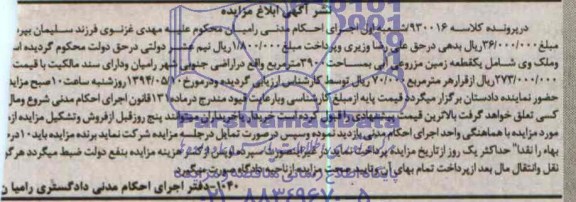 نشر آگهی ابلاغ مزایده
درپرونده کلاسه ۹۳۰۰۱۶/ شعبه اول اجرای احکام مدنی رامیان محکوم علیه مهدی غزنوی فرزند سلیمان
مبلغ ۳۶/۰۰۰/۰۰۰ریال بدهی درحق علی رضا وزیری وپرداخت مبلغ ۱/۸۰۰/۰۰۰ریال نیم عشر دولتی درحق دولت محکوم گردیده
وملک وی شامل یکقطعه زمین مزروعی آبی بمساحت ۳۹۰۰مترمربع واقع دراراضی جنوبی شهر رامیان ودارای سند مالکیت با قیمت
۲۷۳/۰۰۰/۰۰۰ریال ازقرار هر مترمربع ۷۰/۰۰۰ریال توسط کارشناس ارزیابی گردیده ودرمورخ ۱۳۹۴/۰۵/۱۰ روزشنبه ساعت ۱۰صبح
حضور نماینده دادستان برگزار میگردد قیمت پایه از مبلغ کارشناسی وبارعایت قیود مندرج درماده ۱۳۱قانون اجرای احکام مدنی شروع ومال
کسی تعلق خواهد گرفت بالاترین قیمت پیشنهادی را قبول کرده است خریدار یاخریداران میتوانند پنج روزقبل ازفروش وتشکیل مزایده از
مورد مزایده با هماهنگی واحد اجرای احکام مدنی بازدید نموده وسپس درصورت تمایل درجلسه مزایده شرکت نماید برنده مزایده باید ۱۰در
بهاء را نقدا" حداکثر یک روز ازتاریخ مزایده پرداخت نماید درغیراینصورت سپرده ویپس ازکسر هزینه مزایده بنفع دولت ضبط میگردد
نقل وانتقال مال بعد ازپرداخت تمام بهای آن وتایید صحت مزایده ازناحیه دادگاه صورت میگیرد.
۱۰۴۰-دفتر اجرای احکام مدنی دادگستری رامیان
۰۲۱-۸۸۳۴۹۶۷۰-۵